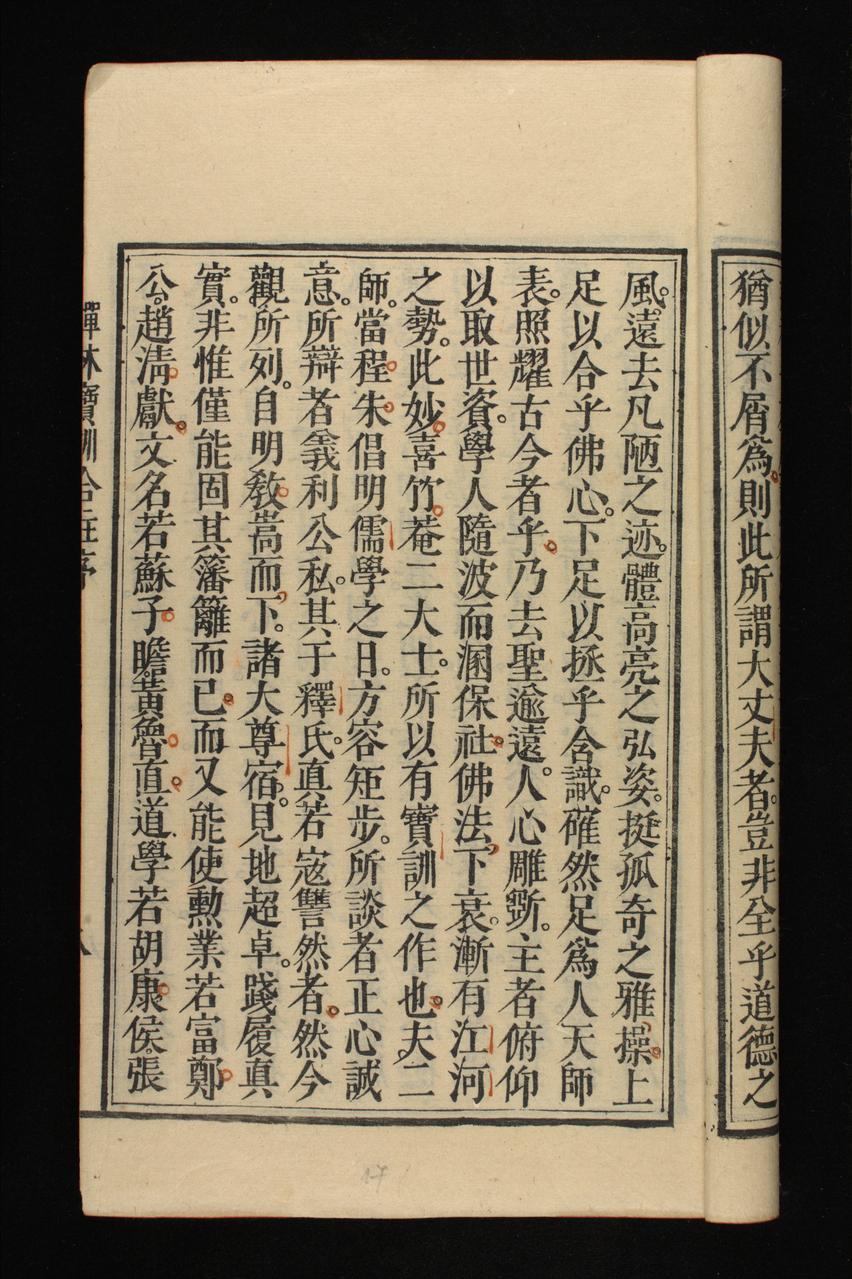 猶似不屑爲則此所謂大丈夫者。豈非全乎道德之
風。遠去凡陋之迹。體高亮之弘姿。挺孤奇之雅操。上
足以合乎佛心。下足以拯乎含識。確然足爲人天師
表。照耀古今者乎。乃去聖逾遠。人心雕斲。主者俯仰
以取世資。學人隨波而溷保社。佛法下衰。漸有江河
之勢。此妙喜竹菴二大士。所以有寶訓之作也。夫二
師。當程朱倡明儒學之日。方容矩步。所談者正心誠
意。所辯者義利公私。其于釋氏。真若寇讐然者。然今
觀所列。自明教嵩而下。諸大尊宿。見地超卓。踐履真
實。非惟僅能固其籓籬而已。而又能使勲業若富鄭
公。趙淸獻。文名若蘇子瞻黃魯直。道學若胡康侯。張
禪林寶訓合註序